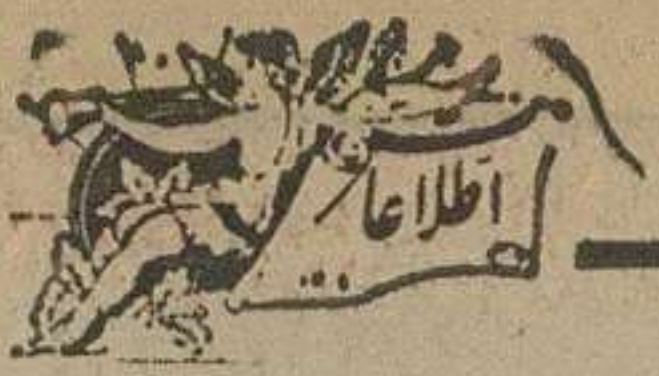 اطلاعا